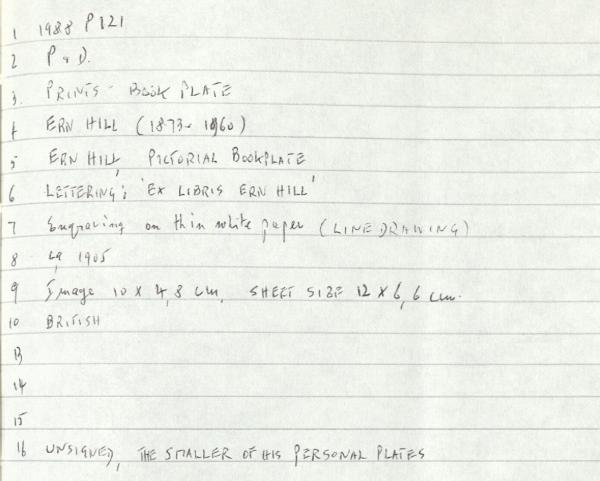 1 1988 P121
2 P & D.
3. PRINTS - BOOK PLATE
4 ERN HILL (1873- 1960)
5 ERN HILL, PICTORIAL BOOKPLATE
6 LETTERING; 'EX LIBRIS ERN HILL'
7 Engraving on thin white paper (LINE DRAWING)
8 ca 1905
9 Image 10 X 4,8 cm, SHEET SIZE 12 X 6,6 cm.
10 BRITISH
13
14
15
16 UNSIGNED, THE SMALLER OF HIS PERSONAL PLATES